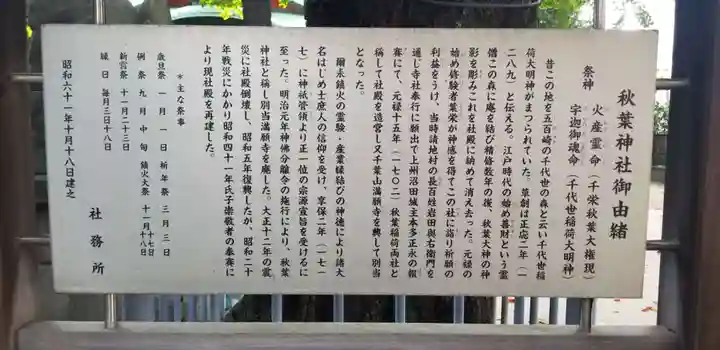 秋葉神社御由緒
祭神 火産霊命(千栄秋葉大権現)
宇迦御魂命(千代世稲荷大明神)
昔この地を五百崎の千代世の森と云い千代世稲
荷大明神がまつられていた。草創は正応二年(一
二八九)と伝える。江戸時代の始め善財という霊
僧この森に庵を結び精修数年の後、秋葉大神の神
影を彫みこれを社殿に納めて消え去った。元禄の
始め修験者葉栄が神感を得てこの社に詣り祈願の
利益をうけ、当時請地村の長百姓岩田與右衛門を
通じ寺社奉行に願出で上州沼田城主本多正永の報
賽にて、元禄十五年(一七〇二)秋葉稲荷両社と
称して社殿を造営し又千葉山満願寺を興して別当
となった。
爾来鎮火の霊験・産業縁結びの神徳により諸大
名はじめ士庶人の信仰を受け、享保二年(一七一
七)に神祇管領より正一位の宗源宣旨を受けるに
至った。明治元年神佛分離令の施行により、秋葉
神社と称し別当満願寺を廃した。大正十二年の震
災に社殿倒壊し、昭和五年復興したが、昭和二十
年戦災にかかり昭和四十一年氏子崇敬者の奉賽に
より現社殿を再建した。
*主な祭事
歳旦祭 一月一日 祈年祭 三月三日
例祭 九月中旬 鎮火大祭 十一月十七日十八日
新嘗祭 十一月二十三日
縁日 毎月三日十八日
昭和六十一年十月十八日建之
社務所